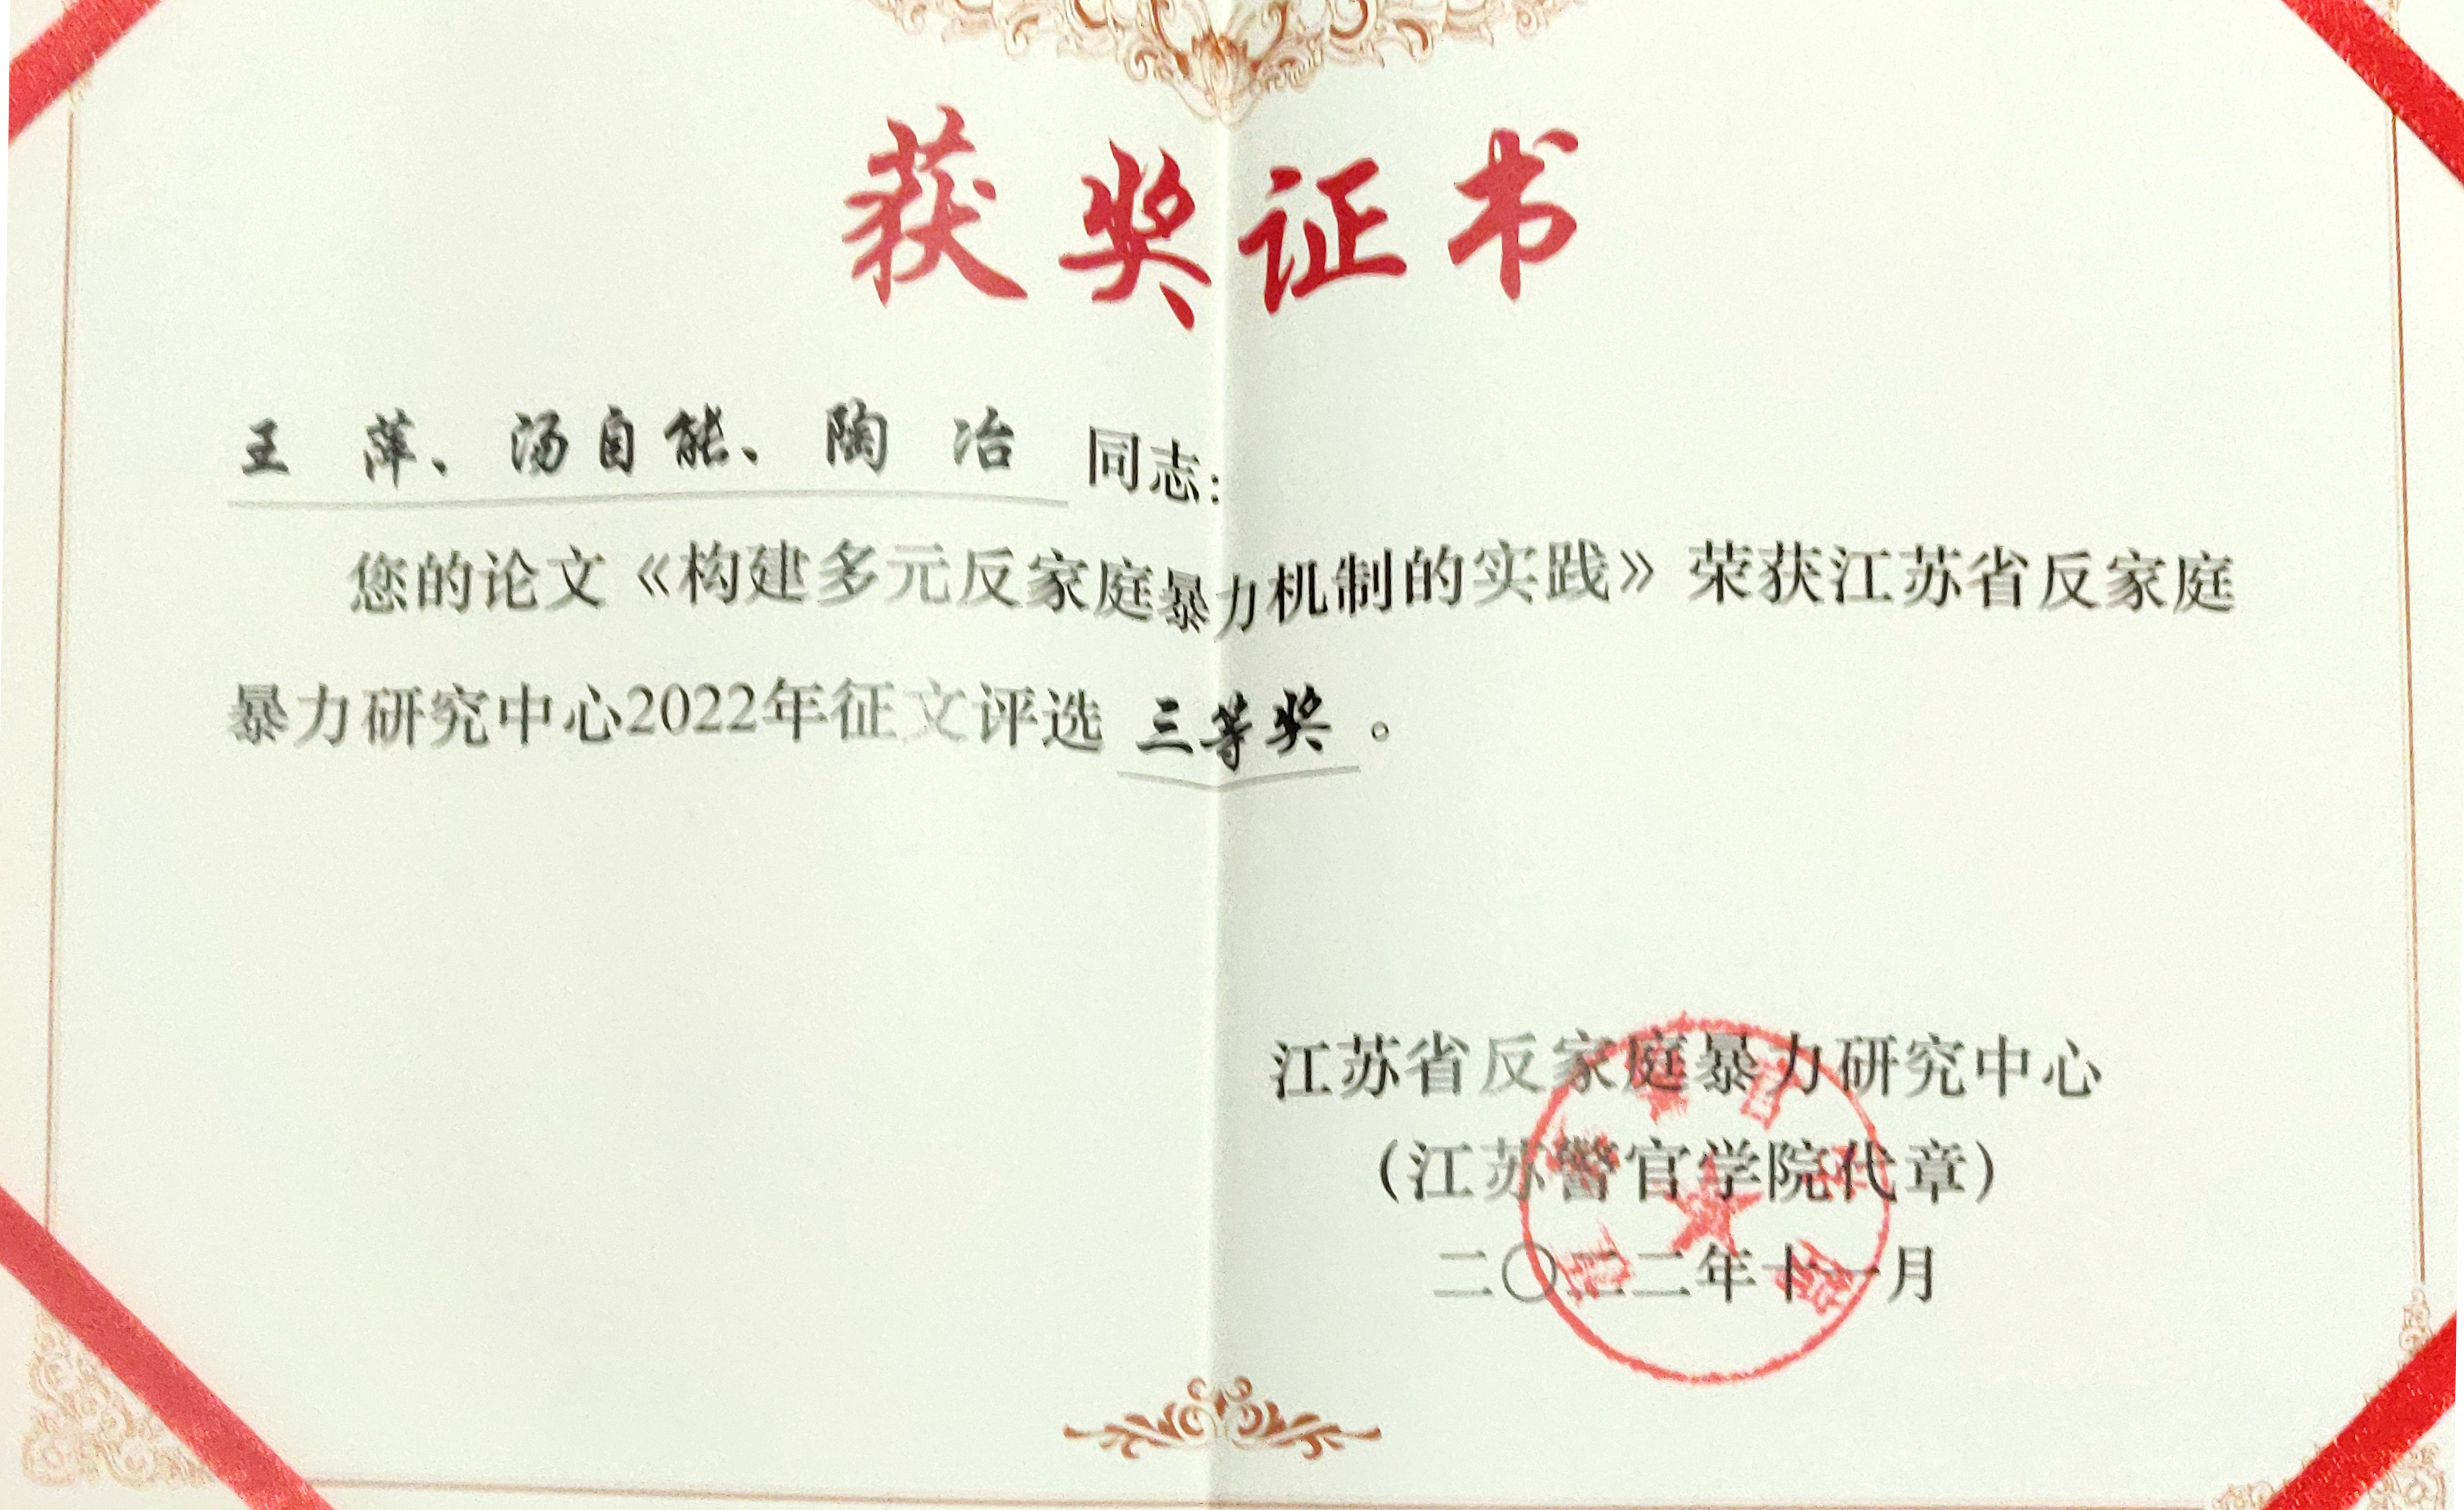 获奖证书
王 萍、汤自能、陶 冶 同志：
您的论文《构建多元反家庭暴力机制的实践》荣获江苏省反家庭
暴力研究中心2022年征文评选 三等奖 。
江苏省反家庭暴力研究中心
（江苏警官学院代章）
二〇二二年十一月